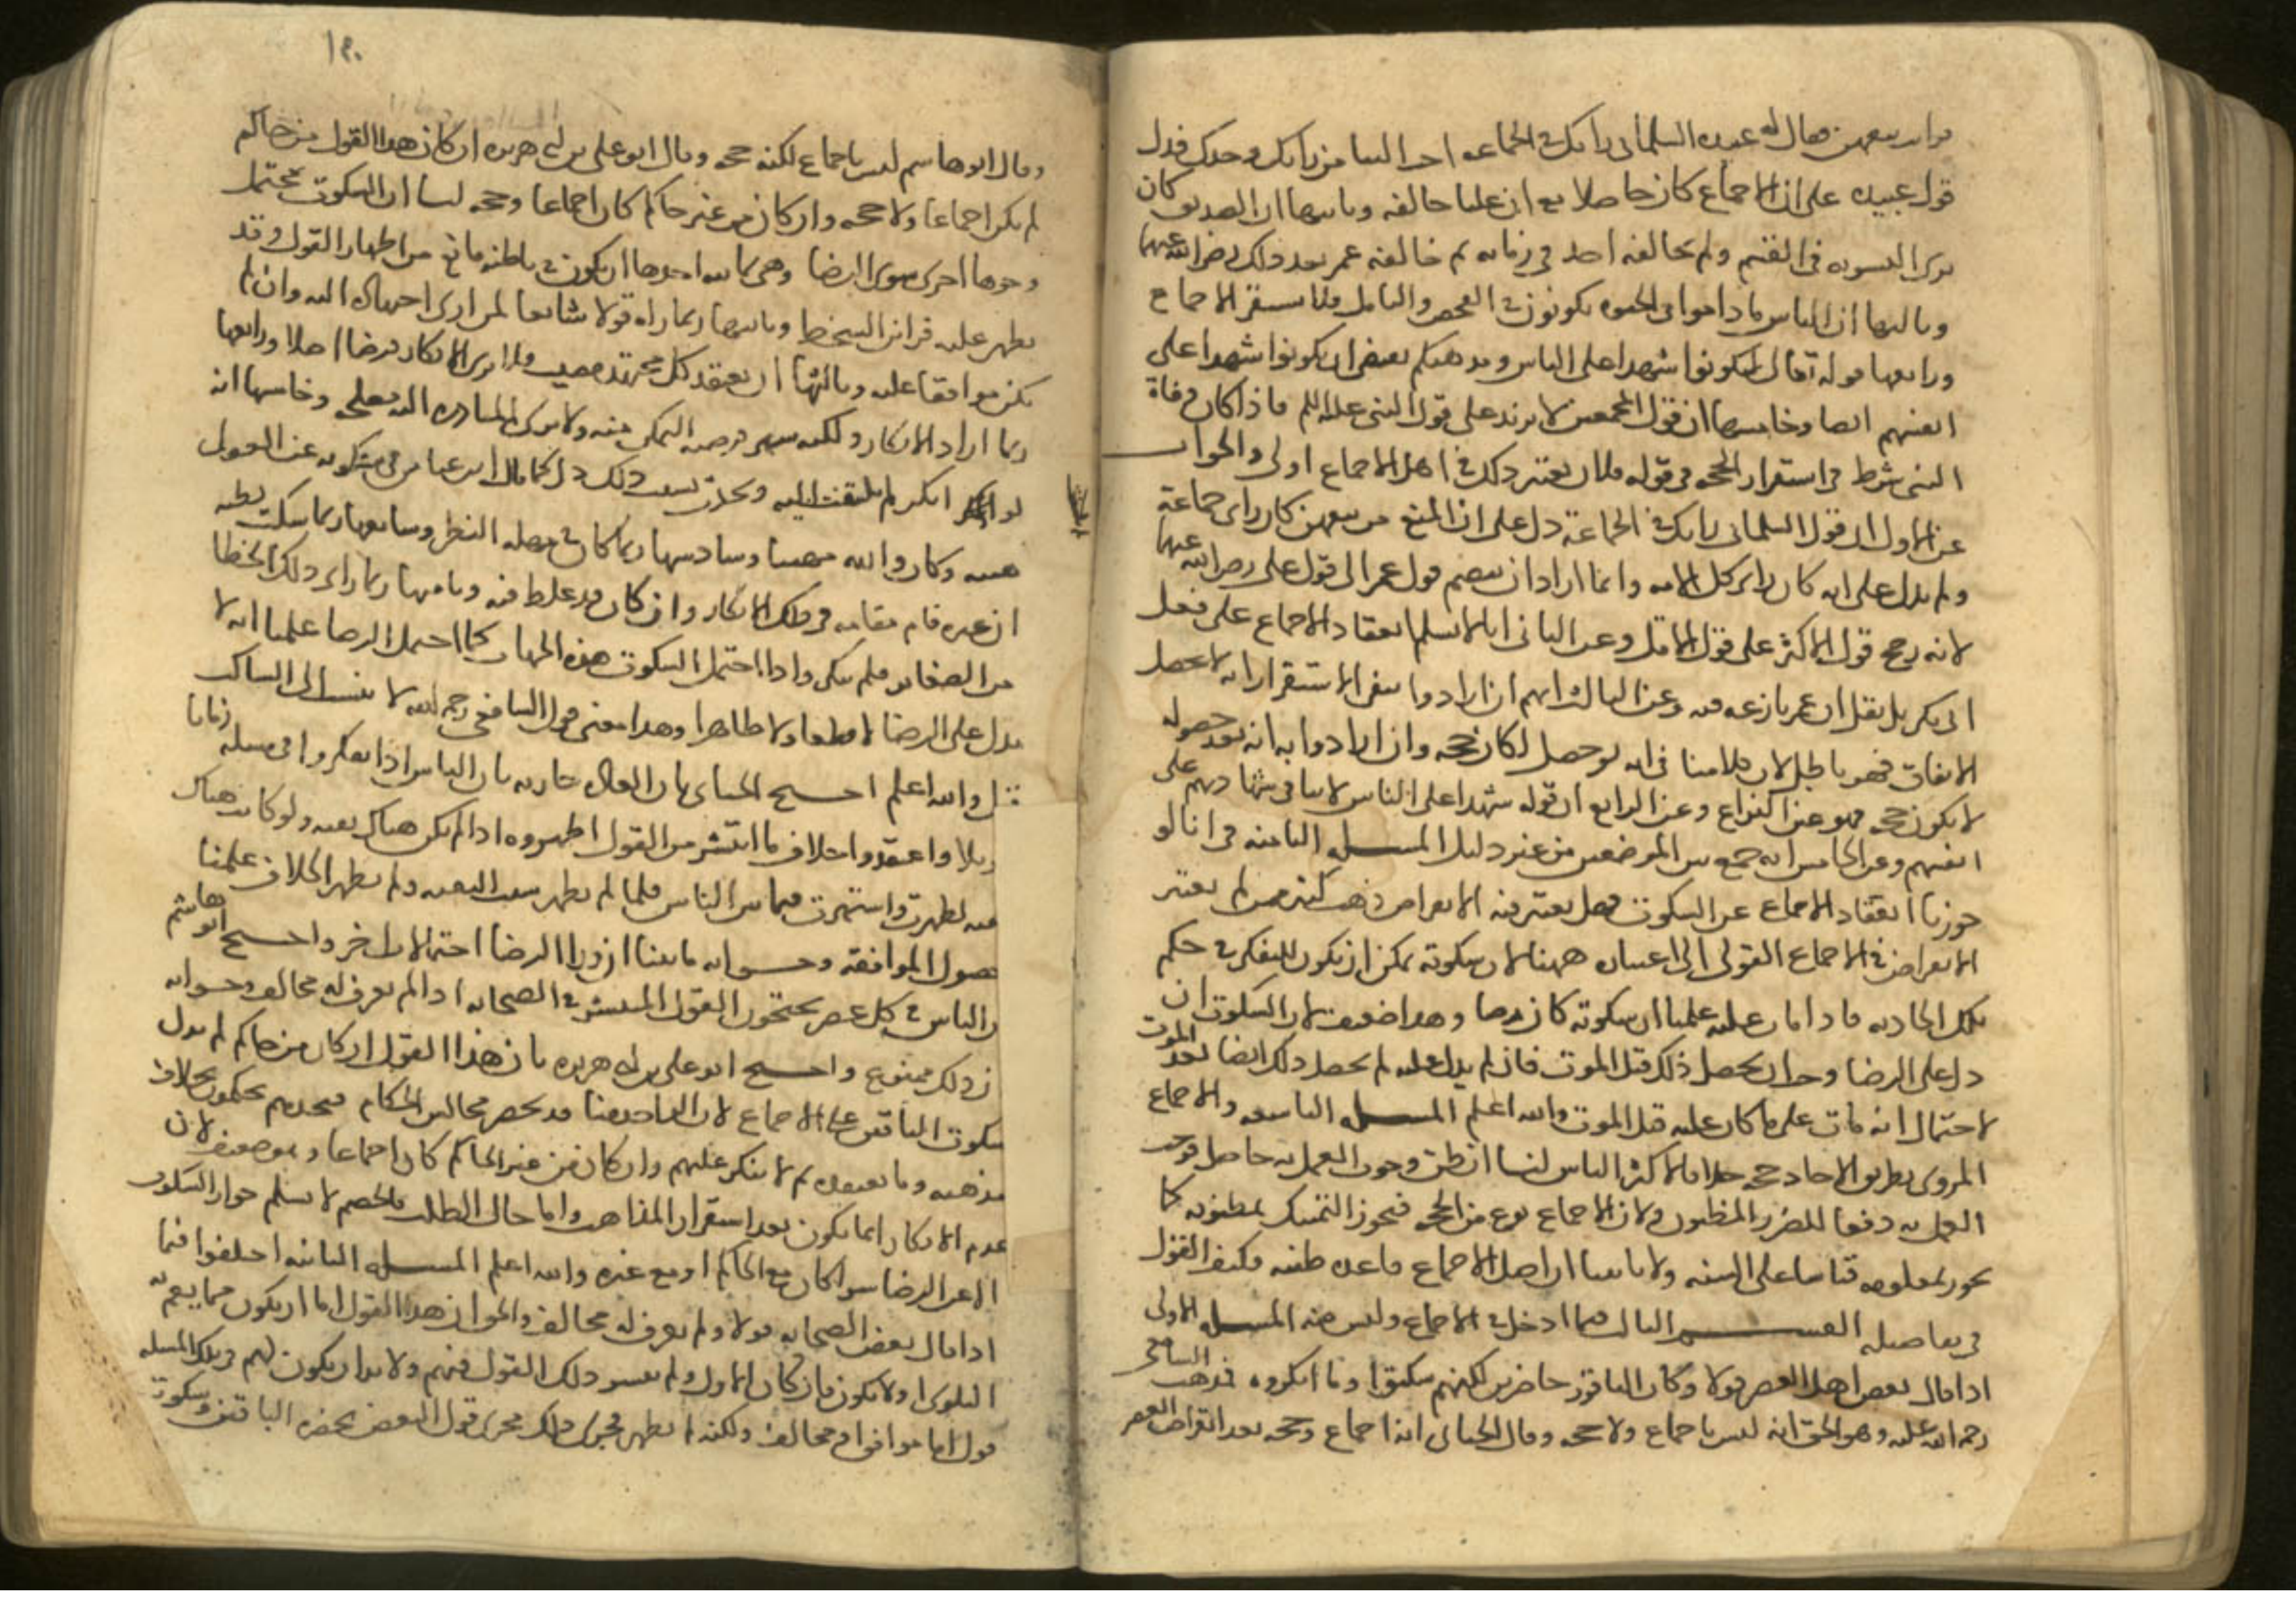 رأيت بيعهن فقال له عبيده السلماني رأيك في الجماعه احب الينا من رأيك وحدك فدل
قول عبيده على ان الاجماع كان حاصلا مع ان عليا خالفه وثانيها ان الصديق كان
يرى التسويه في القسم ولم يخالفه احد في زمانه ثم خالفه عمر بعد ذلك رضي الله عنهما
وثالثها ان الناس ما داموا في الحيوه يكونون في الفحص والتامل فلا يستقر الاجماع
ورابعها قوله تعالى لتكونوا شهدا على الناس ومذهبكم يقتضي ان يكونوا شهدا على
انفسهم ايضا وخامسها ان قول المجمعين لا يزيد على قول النبي عليه السلم فاذا كان وفاة
النبي شرط في استقرار الحجه في قوله فلان يعتبر ذلك في اهل الاجماع اولى والجواب
عن الاول ان قول السلماني رايك في الجماعة دل على ان المنع من بيعهن كان راى جماعة
ولم يدل على انه كان راى كل الامه وانما اراد ان ينضم قول عمر الى قول علي رضي الله عنهما
لانه رجح قول الاكثر على قول الاقل وعن الثاني انا لا نسلم انعقاد الاجماع على فعل
ابي بكر بل نقل ان عمر نازعه فيه وعن الثالث انهم ان ارادوا بنفي الاستقرار انه لا يحصل
الاتفاق فهو باطل لان كلامنا في انه لو حصل لكان حجه وان ارادوا به انه بعد حصوله
لا يكون حجه فهو عين النزاع وعن الرابع ان قوله شهدا على الناس لا ينافي شهادتهم على
انفسهم وعن الخامس انه جمع بين الموضعين من غير دليل المسله الثامنه في انا لو
جوزنا انعقاد الاجماع عن السكوت فهل يعتبر فيه الانقراض ذهب كثير ممن لم يعتبر
الانقراض في الاجماع القولي الى اعتباره ههنا لان سكوته يمكن ان يكون للتفكر في حكم
تلك الحادثه فاذا مات عليه علمنا ان سكوته كان رضا وهذا ضعيف لان السكوت ان
دل على الرضا وجب ان يحصل ذلك قبل الموت فان لم يدل عليه لم يحصل ذلك ايضا بعد الموت
لاحتمال انه مات على ما كان عليه قبل الموت والله اعلم المسله التاسعه والاجماع
المروي بطريق الاحاد حجه خلافا لاكثر الناس لنا ان ظن وجوب العمل به حاصل فوجب
العمل به دفعا للضرر المظنون ولان الاجماع نوع من الحجه فيجوز التمسك بمظنونه كما
يجوز بمعلومه قياسا على السنه ولانا بينا ان اصل الاجماع قاعده ظنيه فكيف القول
في تفاصيله القسم الثالث فيما ادخل في الاجماع وليس منه المسله الاولى
اذا قال بعض اهل العصر قولا وكان الباقون حاضرين لكنهم سكتوا وما انكروه فذهب الشافعي
رحمة الله عليه وهو الحق انه ليس باجماع ولا حجه وقال الجبائي انه اجماع وحجه بعد انقراض العصر
١٩٠
وقال ابو هاشم ليس باجماع لكنه حجه وقال ابو علي بن ابي هريره ان كان هذا القول من حاكم
لم يكن اجماعا ولا حجه وان كان من غير حاكم كان اجماعا وحجه لنا ان السكوت يحتمل
وجوها اخرى سوى الرضا وهي ثمانيه احدها ان يكون في باطنه مانع من اظهار القول وقد
يظهر عليه قراين السخط وثانيها ربما راه قولا سائغا لمن ادى اجتهاده اليه وان لم
يكن موافقا عليه وثالثها ان يعتقد كل مجتهد مصيب فلا يرى الانكار فرضا اصلا ورابعها
ربما اراد الانكار ولكنه ينتهز فرصه التمكن منه ولا يرى المبادره اليه مصلحه وخامسها انه
لو انكر لم يلتفت اليه ولحقه بسبب ذلك ذل كما قال ابن عباس في سكوته عن العول
هبته وكان والله مهيبا وسادسها ربما كان في مهله النظر وسابعها ربما سكت لظنه
ان غيره قام مقامه في ذلك الانكار وان كان قد غلط فيه وثامنها ربما راى ذلك الخطا
من الصغاير فلم ينكر واذا احتمل السكوت هذه الجهات كما احتمل الرضا علمنا انه لا
يدل على الرضا لا قطعا ولا ظاهرا وهذا معنى قول الشافعي رحمه الله لا ينسب الى الساكت
قول والله اعلم احتج الجبائي بان العاده جاريه بان الناس اذا تفكروا في مسله زمانا
طويلا واعتقدوا خلاف ما انتشر من القول اظهروه اذا لم يكن هناك تقيه ولو كانت هناك
تقيه لظهرت واشتهرت فيما بين الناس فلما لم يظهر سبب التقيه ولم يظهر الخلاف علمنا
حصول الموافقه وجوابه ما بينا ان ورا الرضا احتمالات اخر واحتج ابو هاشم
بان الناس في كل عصر يحتجون بالقول المنتشر في الصحابه اذا لم يعرف له مخالف وجوابه
ان ذلك ممنوع واحتج ابو علي بن ابي هريره بان هذا القول ان كان من حاكم لم يدل
سكوت الباقين على الاجماع لان الواحد منا قد يحضر مجالس الحكام فيجدهم يحكمون بخلاف
مذهبه وما يعتقده ثم لا ينكر عليهم وان كان من غير الحاكم كان اجماعا وهو ضعيف لان
عدم الانكار انما يكون بعد استقرار المذاهب واما حال الطلب فالخصم لا يسلم جواز السكوت
الا عن الرضا سوا كان مع الحاكم او مع غيره والله اعلم المسله الثانيه اختلفوا فيما
اذا قال بعض الصحابه قولا ولم يعرف له مخالف والحق ان هذا القول اما ان يكون مما يعم به
البلوى او لا يكون فان كان الاول ولم ينتشر ذلك القول فيهم ولا بد ان يكون لهم في تلك المسله
قول اما موافق او مخالف ولكنه لم يظهر فيجرى ذلك مجرى قول البعض بحضره الباقين وسكوت